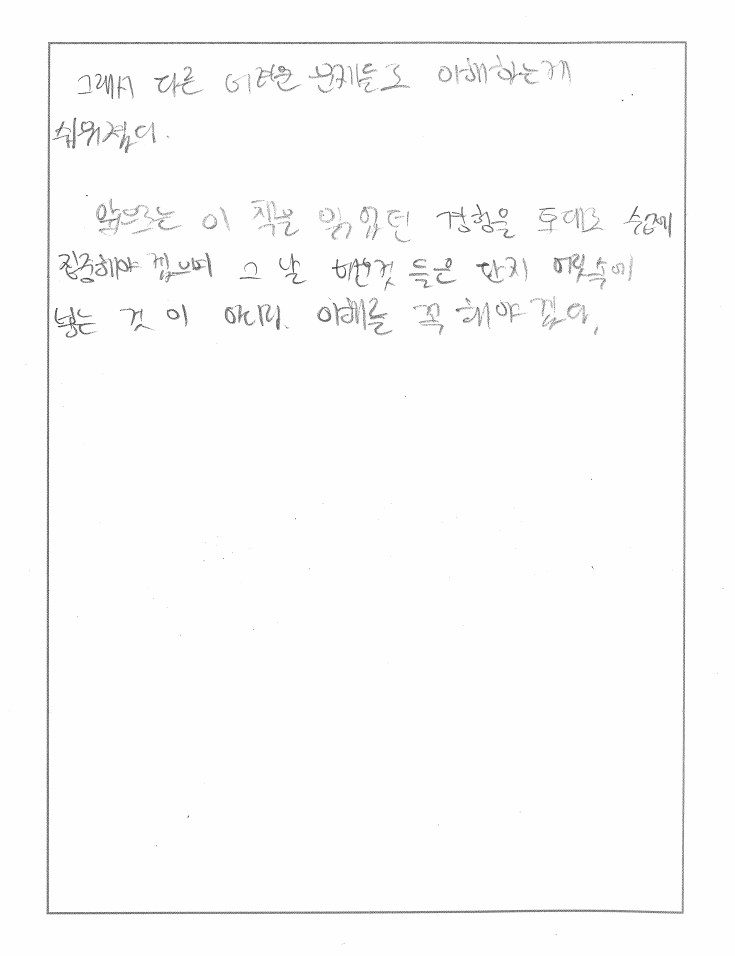 그래서 다른 어려운 문제들도 이해하는게
쉬워졌다.
앞으로는 이 책을 읽었던 경험을 토대로 수업에
집중해야 겠으며 그 날 배운것 들은 단지 머릿속에
넣는 것 이 아니라. 이해를 꼭 해야 겠다.